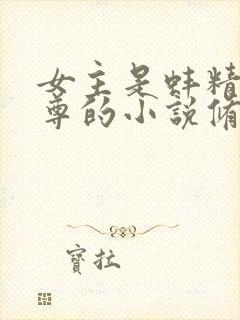 女主是蚌精
尊的小說脩
寶拉